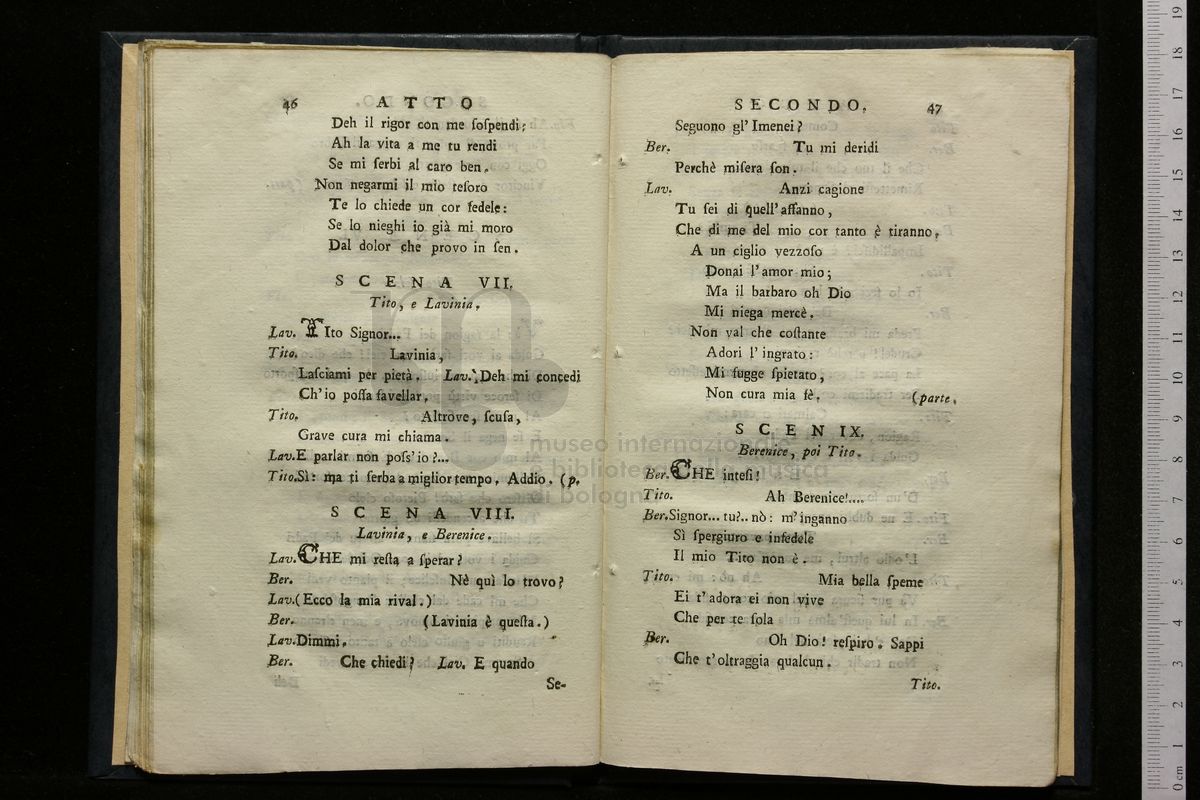 46 ATTO
Deh il rigor con me ſoſpendi;
Ah la vita a me tu rendi
Se mi ſerbi al caro ben.
Non negarmi il mio teſoro
Te lo chiede un cor fedele:
Se lo nieghi io già mi moro
Dal dolor che provo in ſen.
SCENA VII.
Tito, e Lavinia.
Lav. TIto Signor...
Tito. Lavinia,
Laſciami per pietà. Lav. Deh mi concedi
Ch'io poſſa favellar.
Tito. Altrove, ſcuſa,
Grave cura mi chiama.
Lav. E parlar non poſs'io?...
Tito. Sì: ma ti ſerba a miglior tempo. Addio. (p.
SCENA VIII.
Lavinia, e Berenice.
Lav. CHE mi reſta a ſperar?
Ber. Nè quì lo trovo?
Lav. (Ecco la mia rival.)
Ber. (Lavinia è queſta.)
Lav. Dimmi.
Ber. Che chiedi? Lav. E quando
Se-
SECONDO. 47
Seguono gl'Imenei?
Ber. Tu mi deridi
Perchè miſera ſon.
Lav. Anzi cagione
Tu ſei di quell'affanno,
Che di me del mio cor tanto è tiranno.
A un ciglio vezzoſo
Donai l'amor mio;
Ma il barbaro oh Dio
Mi niega mercè.
Non val che coſtante
Adori l'ingrato:
Mi fugge ſpietato,
Non cura mia fè. (parte.
SCEN IX.
Berenice, poi Tito.
Ber. CHE inteſi!
Tito. Ah Berenice!....
Ber. Signor... tu?.. nò: m'inganno
Sì ſpergiuro e infedele
Il mio Tito non è.
Tito. Mia bella ſpeme
Ei t'adora ei non vive
Che per te ſola
Ber. Oh Dio! reſpiro. Sappi
Che t'oltraggia qualcun.
Tito.
museo internazionale
e biblioteca della musica
di bologna
0 cm 1 2 3 4 5 6 7 8 9 10 11 12 13 14 15 16 17 18 19